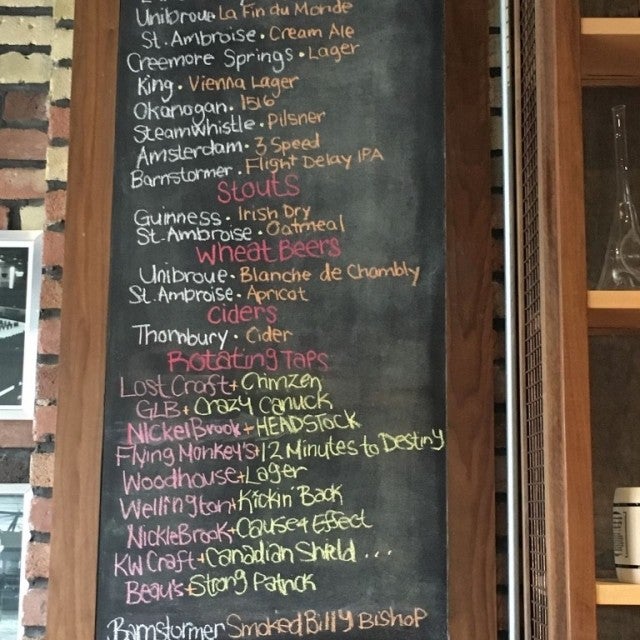 Unibroue La Fin du Monde
St. Ambroise • Cream Ale
Creemore Springs • Lager
King • Vienna Lager
Okanogan • 1516
Steamwhistle • Pilsner
Amsterdam • 3 Speed
Barnstormer • Flight Delay IPA
Stouts
Guinness • Irish Dry
St. Ambroise • Oatmeal
Wheat Beers
Unibroue • Blanche de Chambly
St. Ambroise • Apricot
Ciders
Thornbury • Cider
Rotating Taps
Lost Craft + Crimzen
GLB + Crazy Canuck
Nickel Brook + HEADSTOCK
Flying Monkey's 12 Minutes to Destiny
Woodhouse + Lager
Wellington + Kickin' Back
Nickle Brook + Cause & Effect
KW Craft + Canadian Shield ...
Beau's + Strong Patrick
Barnstormer Smoked Billy Bishop